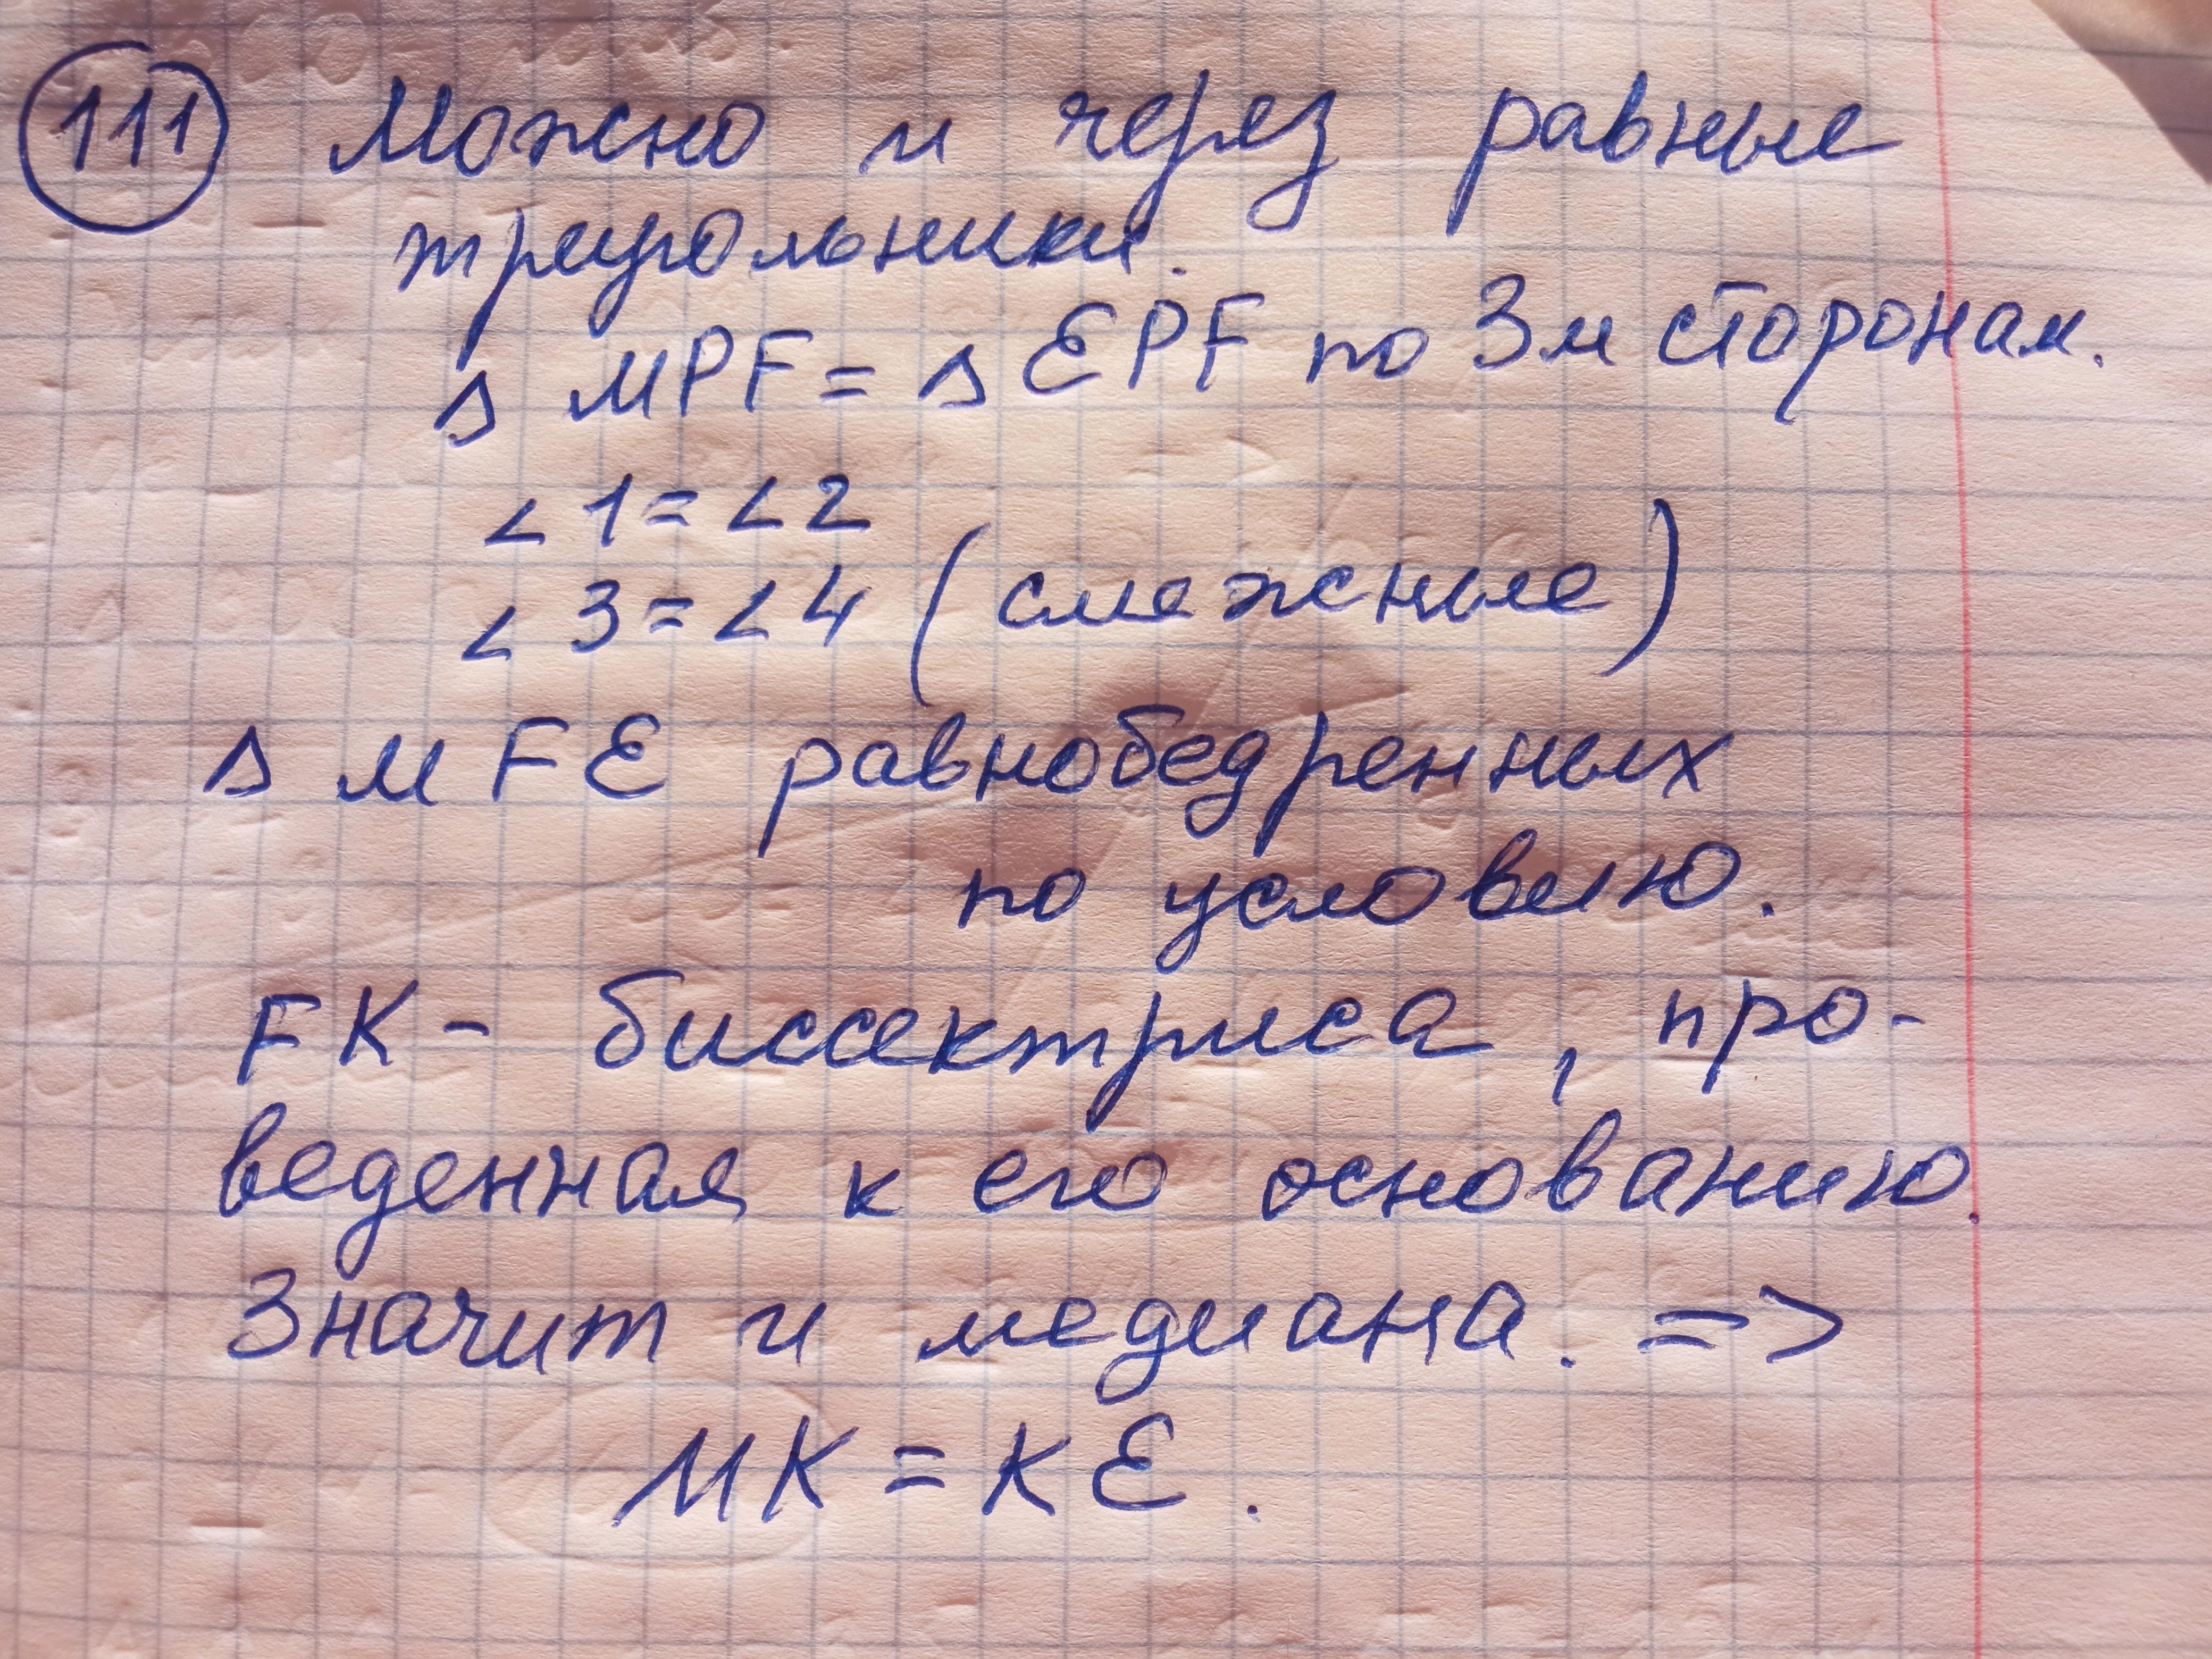 111 Можно и через равные
треугольники.
Δ MPF = Δ EPF по 3м сторонам.
∠1 = ∠2
∠3 = ∠4 (смежные)
Δ MFE равнобедренных
по условию.
FK - биссектриса, про-
веденная к его основанию.
Значит и медиана. =>
MK = KE.